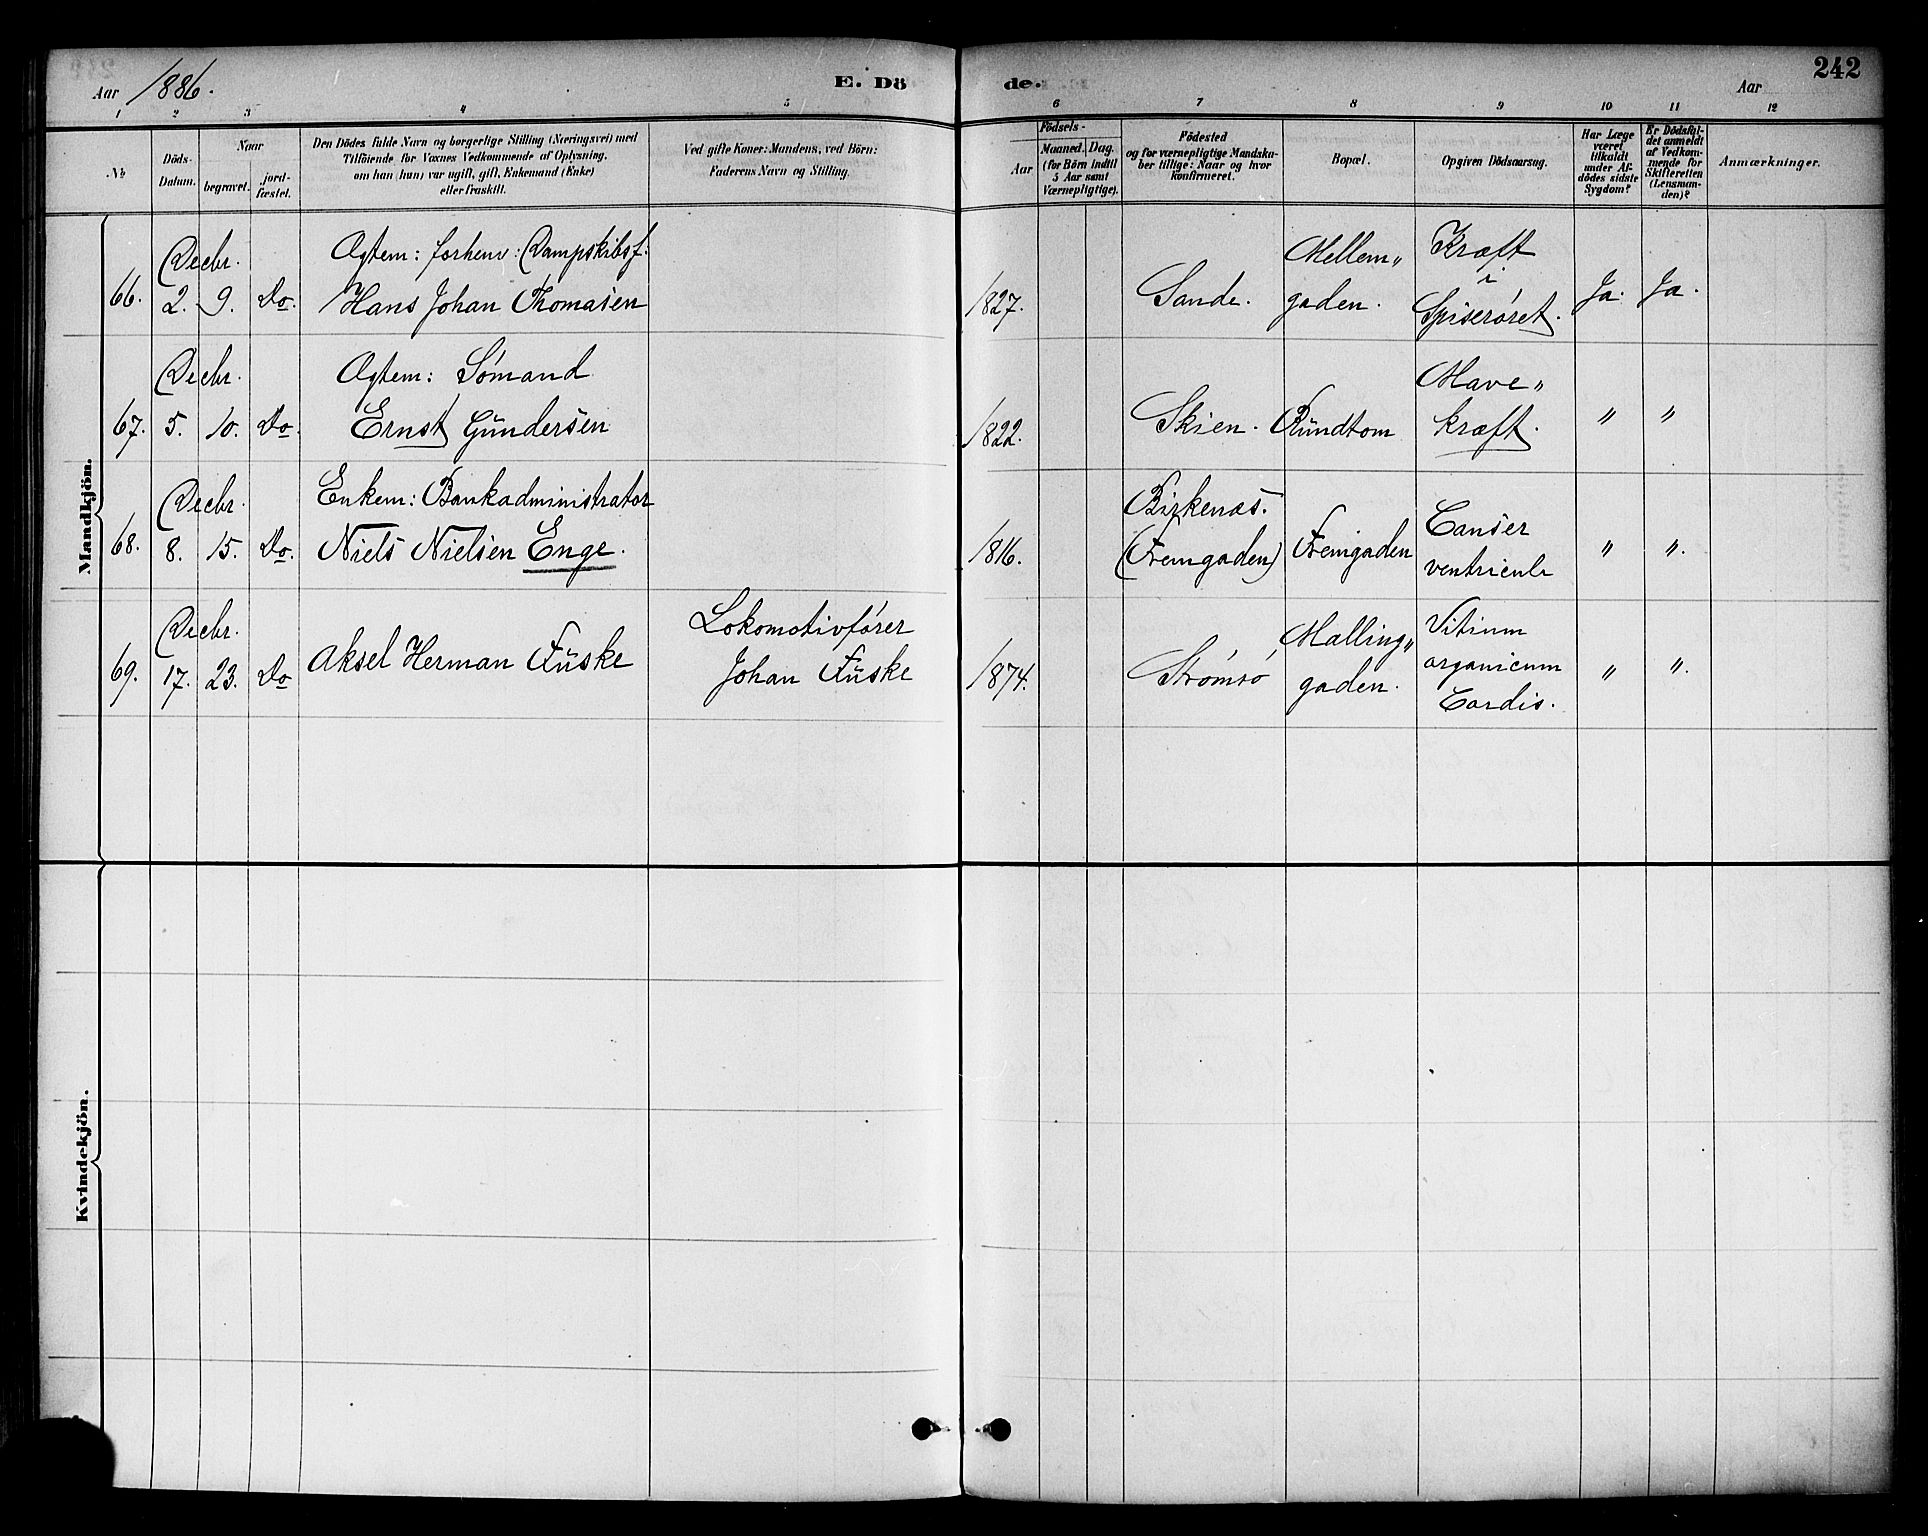 Aar 1886.
E. Dö
de.
Aar
242
1 2 3 4 5 6 7 8 9 10 11 12
№
Döds-
Datum.
Naar
begravet.
jord-
fæstet.
Den Dödes fulde Navn og borgerlige Stilling (Næringsvei) med
Tilföiende for Voxnes Vedkommende af Oplysning,
om han (hun) var ugift, gift, Enkemand (Enke)
eller fraskilt.
Ved gifte Koner: Mandens, ved Börn:
Faderens Navn og Stilling.
Födsels-
Aar
Maaned. Dag.
(for Börn indtil
5 Aar samt
Værnepligtige).
Födested
og for værnepligtige Mandska-
ber tillige: Naar og hvor
konfirmeret.
Bopæl.
Opgiven Dödsaarsag.
Har Læge
været
tilkaldt
under Af-
dödes sidste
Sygdom?
Er Dödsfal-
det anmeldt
af Vedkom-
mende for
Skifteretten
(Lensman-
den)?
Anmærkninger.
Mandkjön.
66.
Decbr.
2. 9. Do.
Ægtem: forhenv: Dampskibsf:
Hans Johan Thomasen
1827.
Sande.
Mellem„
gaden.
Kræft
i
Spiserøret.
Ja. Ja.
67.
Decbr.
5. 10. Do.
Ægtem: Sømand
Ernst Gundersen
1822.
Skien.
Rundtom
Mave„
kræft.
" "
68.
Decbr.
8. 15. Do.
Enkem: Bankadministrator
Niels Nielsen Enge.
1816.
Birkenæs.
(Fremgaden)
Fremgaden
Canser
ventriculi
" ".
69.
Decbr.
17. 23. Do
Aksel Herman Fuske
Lokomotivfører
Johan Fuske
1874.
Strømsø
Malling„
gaden.
Vitium
organicum
Cordis.
" ".
Kvindekjön.